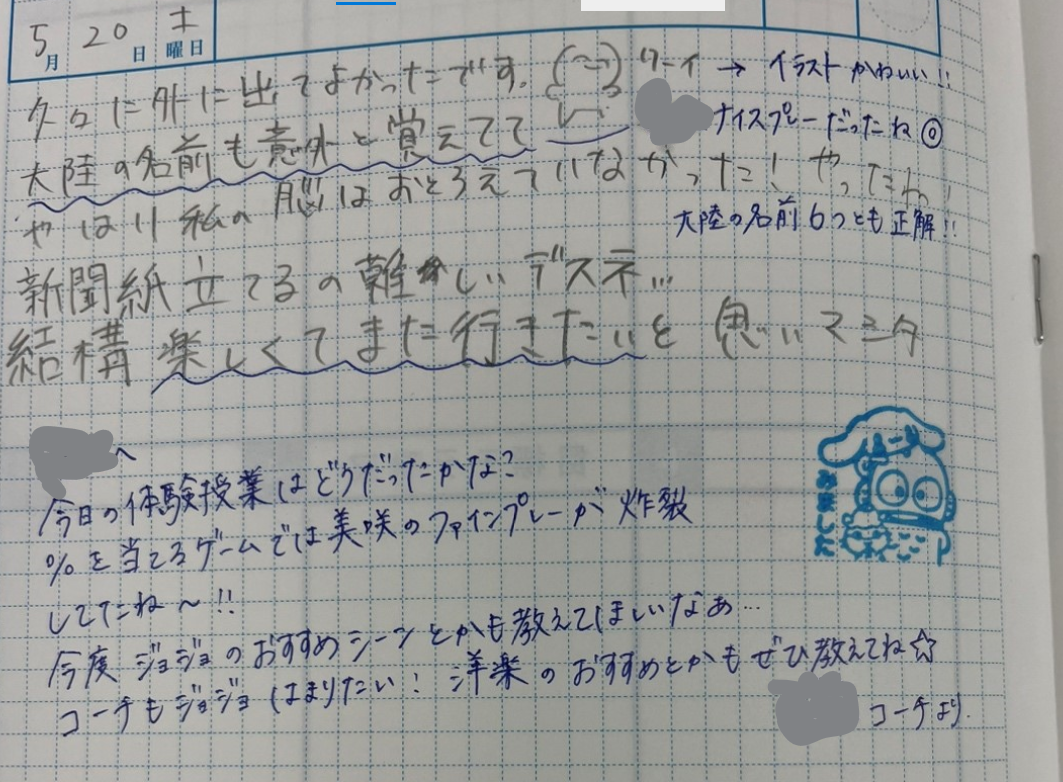 5月20日土曜日
久々に外に出てよかったです。ワーイ → イラストかわいい!!
ナイスプレーだったね◎
大陸の名前も意外と覚えてて
やはり私の脳はおとろえていなかった!やったわ!
大陸の名前6つとも正解!!
新聞紙立てるの難かしいデスネ…
結構楽しくてまた行きたいと思いマシタ
へ
今日の体験授業はどうだったかな?
%を当てるゲームでは美咲のファインプレーが炸裂
してたね～!!
今度ジョジョのおすすめシーンとかも教えてほしいなぁ…
コーチもジョジョはまりたい! 洋楽のおすすめとかもぜひ教えてね☆
コーチより.
みました